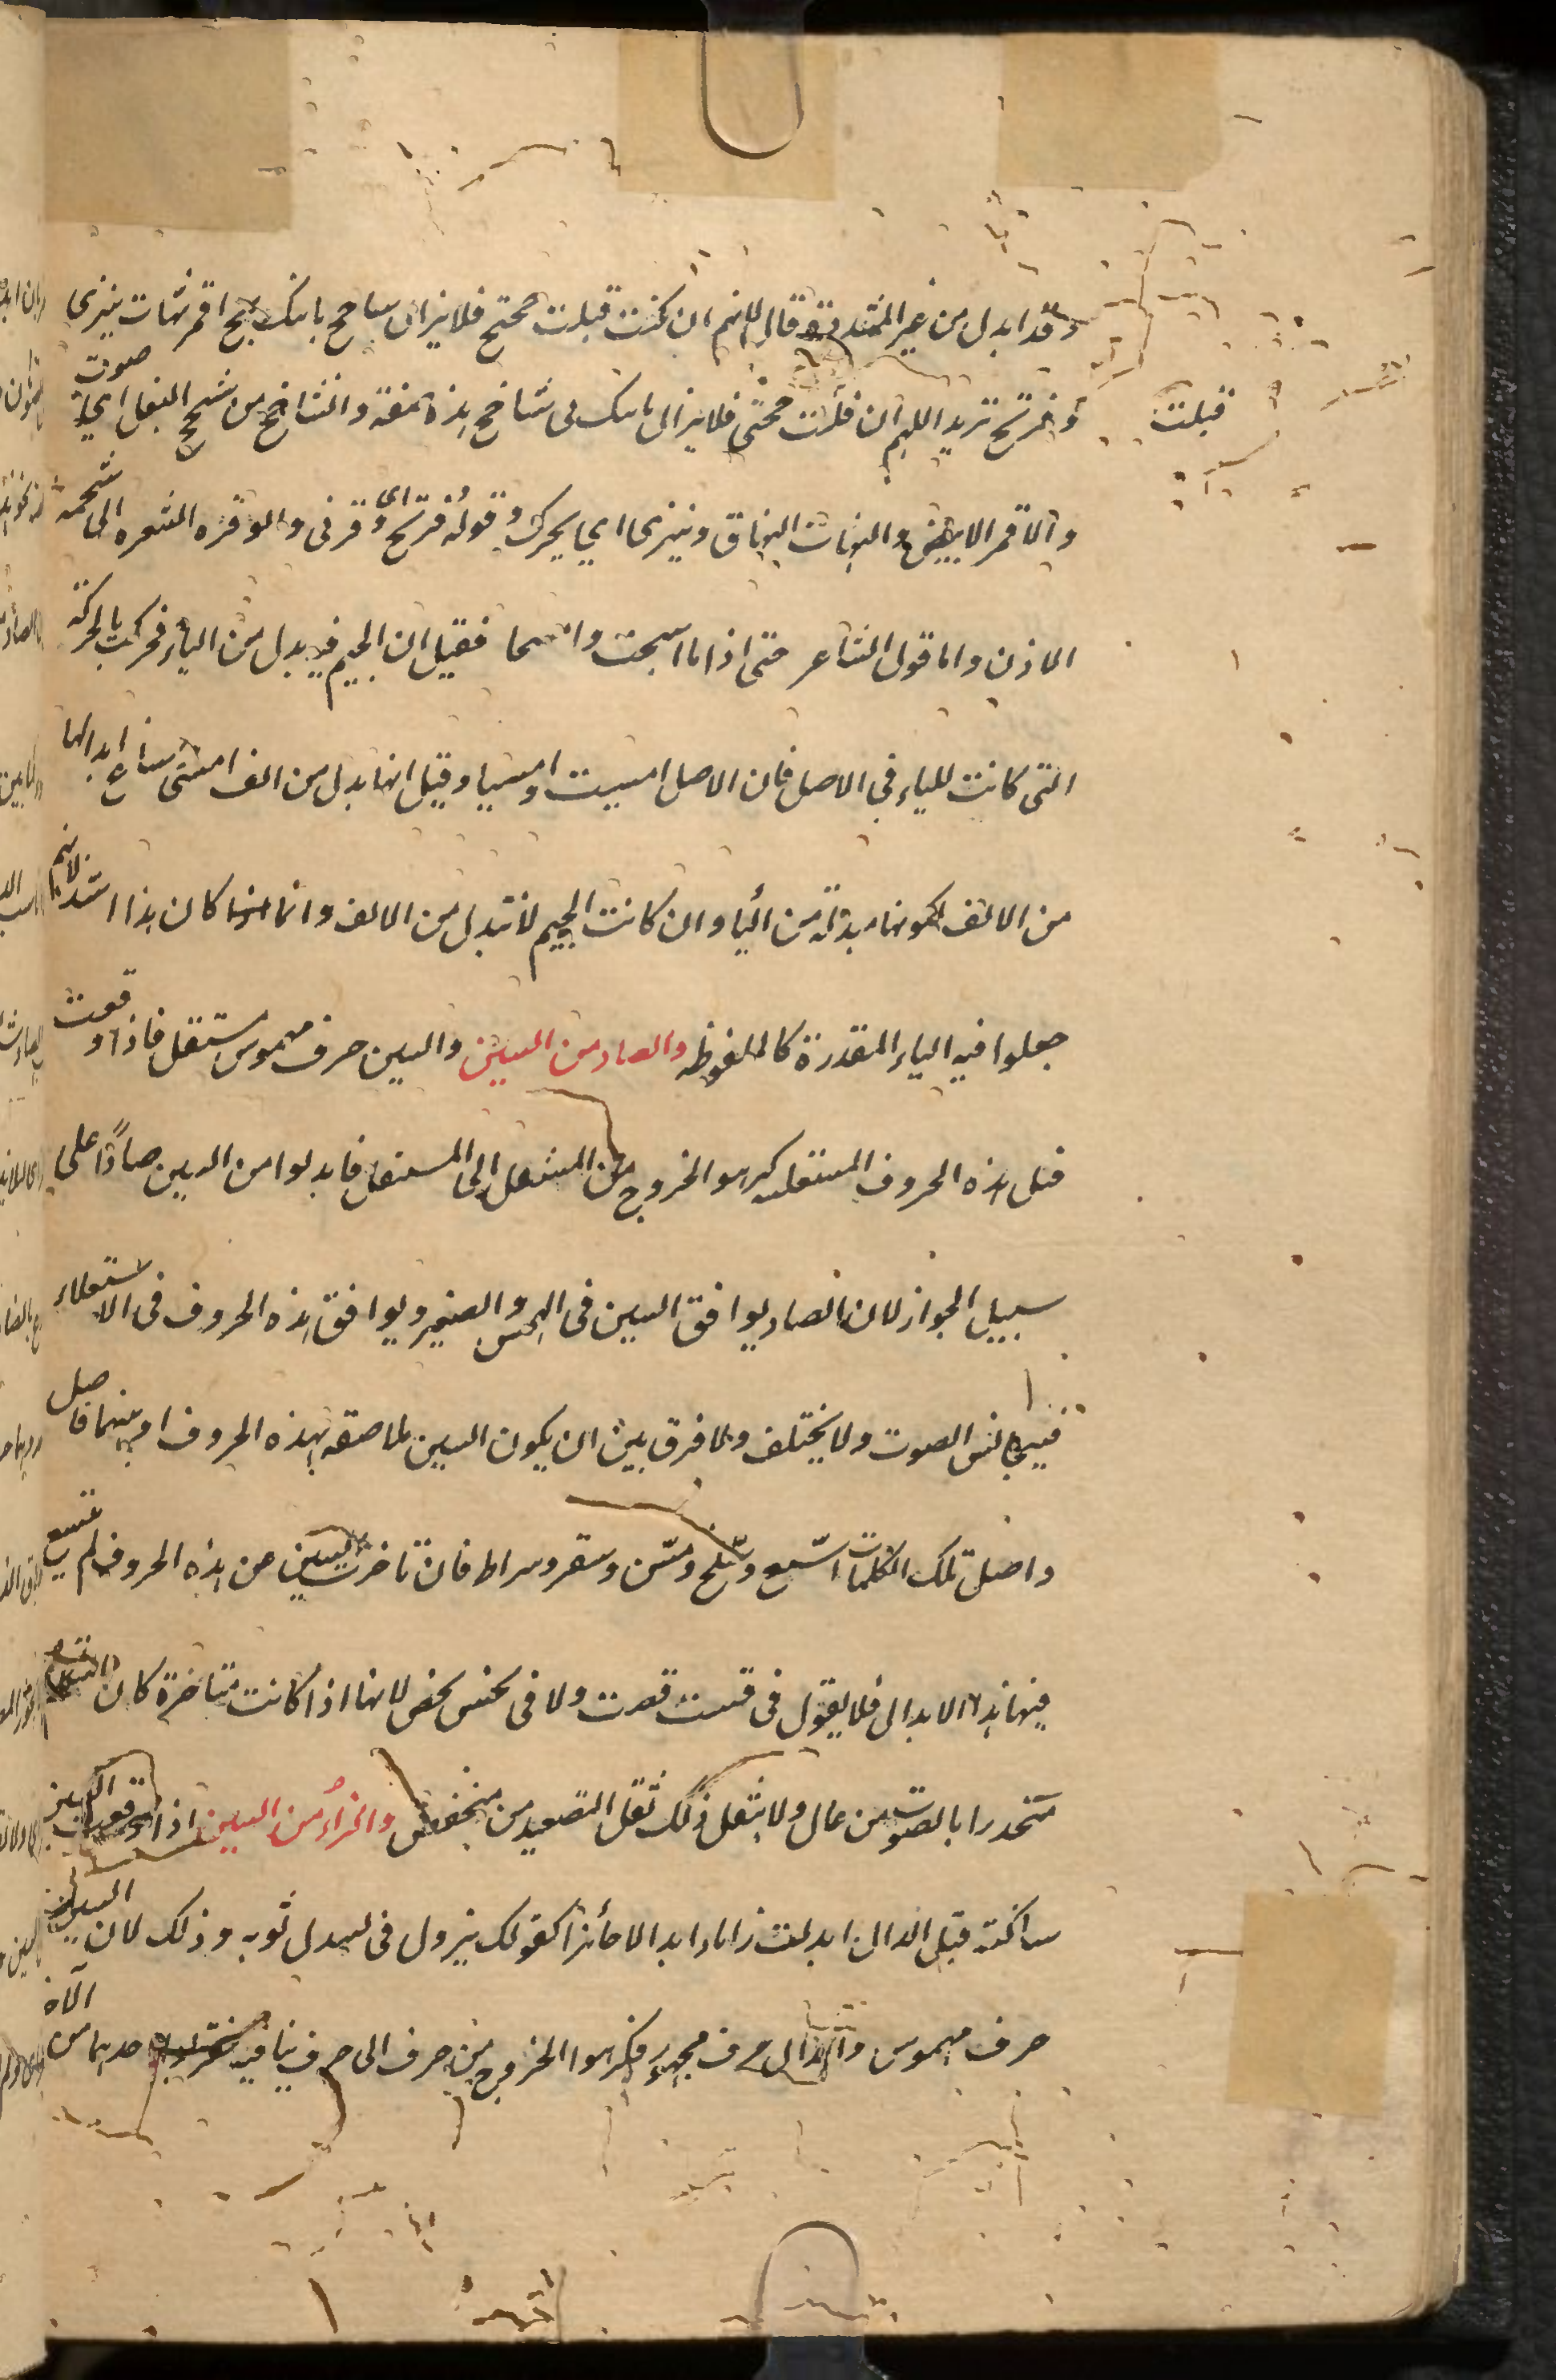 وقد ابدل من غير المشددة قال اللهم ان كنت قبلت حجتج فلا يزال ساحج ياتيك بج اقمر نهات ينزى
قبلت
وفرتج تريد اللهم ان قبلت حجتى فلا يزال ياتيك بى شاحج هذه صفته والشاحج من شحج البغل اي صوت
والاقمر الابيض والنهات النهاق وينزى اي يحرك وقوله وفرتج اى وفرتى والوفره الشعره الى شحمة
الاذن واما قول الشاعر حتى اذا ما امسجت وامسجا فقيل ان الجيم فيه بدل من الياء فحركت بالحركة
التى كانت للياء في الاصل فان الاصل امسيت وامسيا وقيل انها بدل من الف امسى ساغ ابدالها
من الالف لكونها مبدلة من اليا وان كانت الجيم لا تبدل من الالف وانما كان هذا اشذ لانهم
جعلوا فيه الياء المقدرة كالملفوظه والصاد من السين والسين حرف مهموس مستفل فاذا وقعت
قبل هذه الحروف المستعليه كرهوا الخروج من المستفل الى المستعل فابدلوا من السين صادًا على
سبيل الجواز لان الصاد يوافق السين فى الهمس والصفير ويوافق هذه الحروف فى الاستعلاء
فيتجانس الصوت ولا يختلف ولا فرق بين ان يكون السين ملاصقه بهذه الحروف او بينهما فاصل
واصل تلك الكلمات اسبع وسلخ ومسّ وسقر وسراط فان تاخرت السين عن هذه الحروف لم يسغ
فيها هذا الابدال فلا يقول فى قست قصت ولا فى بخس بخص لانها اذا كانت متاخرة كان المتكلم
متحدرا بالصوت من عال ولا يثقل ذلك ثقل التصعيد من منخفض والزاء من السين اذا وقعت السين
ساكنة قبل الدال ابدلت زايا ابدالا جائزا كقولك يزدل فى يسدل ثوبه وذلك لان السين
حرف مهموس والدال حرف مجهور فكرهوا الخروج من حرف الى حرف ينافيه